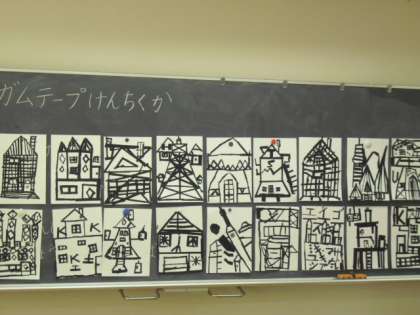 ガムテープけんちくか